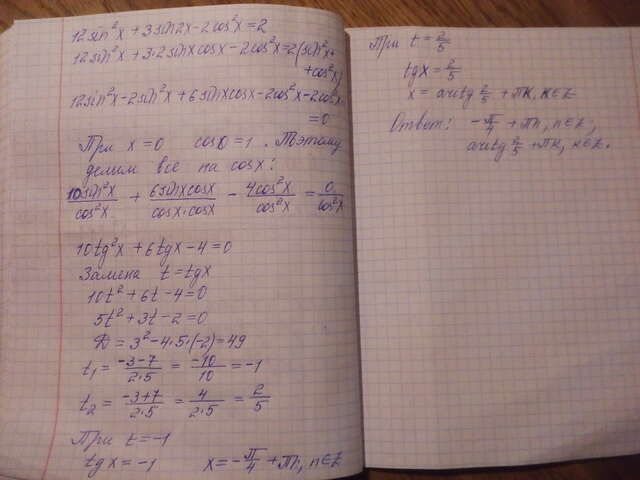 12sin²x + 3sin2x - 2cos²x = 2
12sin²x + 3·2sinxcosx - 2cos²x = 2(sin²x +
+ cos²x)
12sin²x - 2sin²x + 6sinxcosx - 2cos²x - 2cos²x
= 0
При x = 0 cos0 = 1. Поэтому
делим всё на cosx:
10sin²x/cos²x + 6sinxcosx/cosx·cosx - 4cos²x/cos²x = 0/cos²x
10tg²x + 6tgx - 4 = 0
Замена t = tgx
10t² + 6t - 4 = 0
5t² + 3t - 2 = 0
D = 3² - 4·5·(-2) = 49
t₁ = -3-7/2·5 = -10/10 = -1
t₂ = -3+7/2·5 = 4/2·5 = 2/5
При t = -1
tgx = -1 x = -π/4 + πn, n∈Z
При t = 2/5
tgx = 2/5
x = arctg 2/5 + πk, k∈Z
Ответ: -π/4 + πn, n∈Z;
arctg 2/5 + πk, k∈Z.